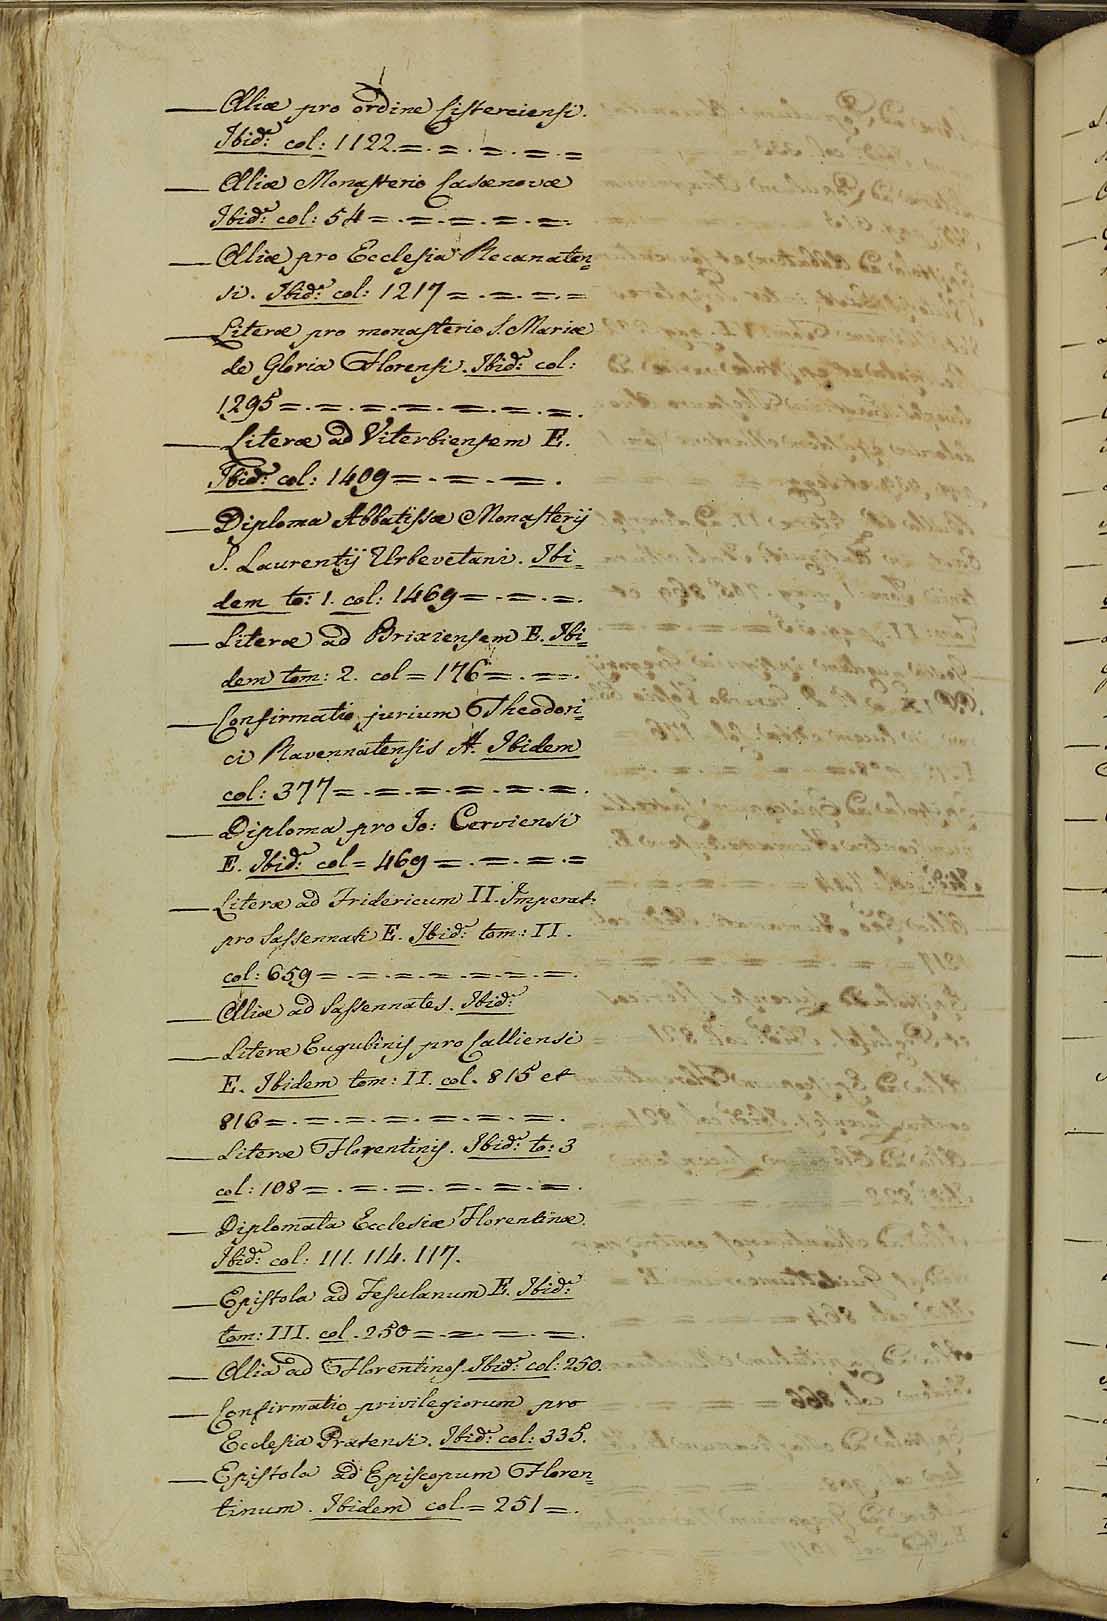 — Aliæ pro ordine Cisterciensi.
Ibid: col: 1122 = . = . = . = . =
— Aliæ Monasterio Casænovæ
Ibid: col: 54 = . = . = . = . =
— Aliæ pro Ecclesia Recanaten=
si. Ibid: col: 1217 = . = . = . =
— Literæ pro monasterio S. Mariæ
de Gloria Florensi. Ibid: col:
1295 = . = . = . = . = . = . = .
— Literæ ad Viterbiensem E.
Ibid: col: 1409 = . = . = .
— Diploma Abbatissæ Monasterij
S. Laurentij Urbevetani. Ibi=
dem to: 1. col: 1469 = . = . = .
— Literæ ad Brixiensem E. Ibi=
dem tom: 2. col = 176 = . = .
— Confirmatio jurium Theodori=
ci Ravennatensis A. Ibidem
col: 377 = . = . = . = . = . = .
— Diploma pro Jo: Cerviensi
E. Ibid: col = 469 = . = . = . =
— Literæ ad Fridericum II. Imperat:
pro Sassennati E. Ibid: tom: II.
col: 659 = . = . = . = . = . = .
— Aliæ ad Sassennates. Ibid:
— Literæ Eugubinis pro Calliensi
E. Ibidem tom: II. col. 815 et
816 = . = . = . = . = . = . = .
— Literæ Florentinis. Ibid: to: 3
col: 108 = . = . = . = . = . = .
— Diplomata Ecclesiæ Florentinæ.
Ibid: col: 111. 114. 117.
— Epistola ad Fesulanum E. Ibid:
tom: III. col. 250 = . = . = . = .
— Alia ad Florentinos. Ibid: col: 250.
— Confirmatio privilegiorum pro
Ecclesia Pratensi. Ibid: col: 335.
— Epistola ad Episcopum Floren=
tinum. Ibidem col. = 251 = .